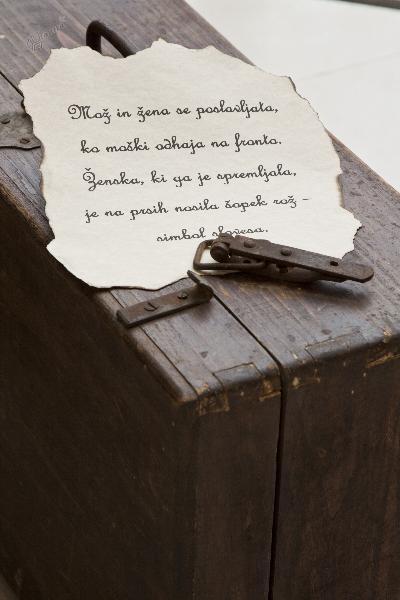 Mož in žena se poslavljata,
ko moški odhaja na fronto.
Ženska, ki ga je spremljala,
je na prsih nosila šopek rož -
simbol slovesa.